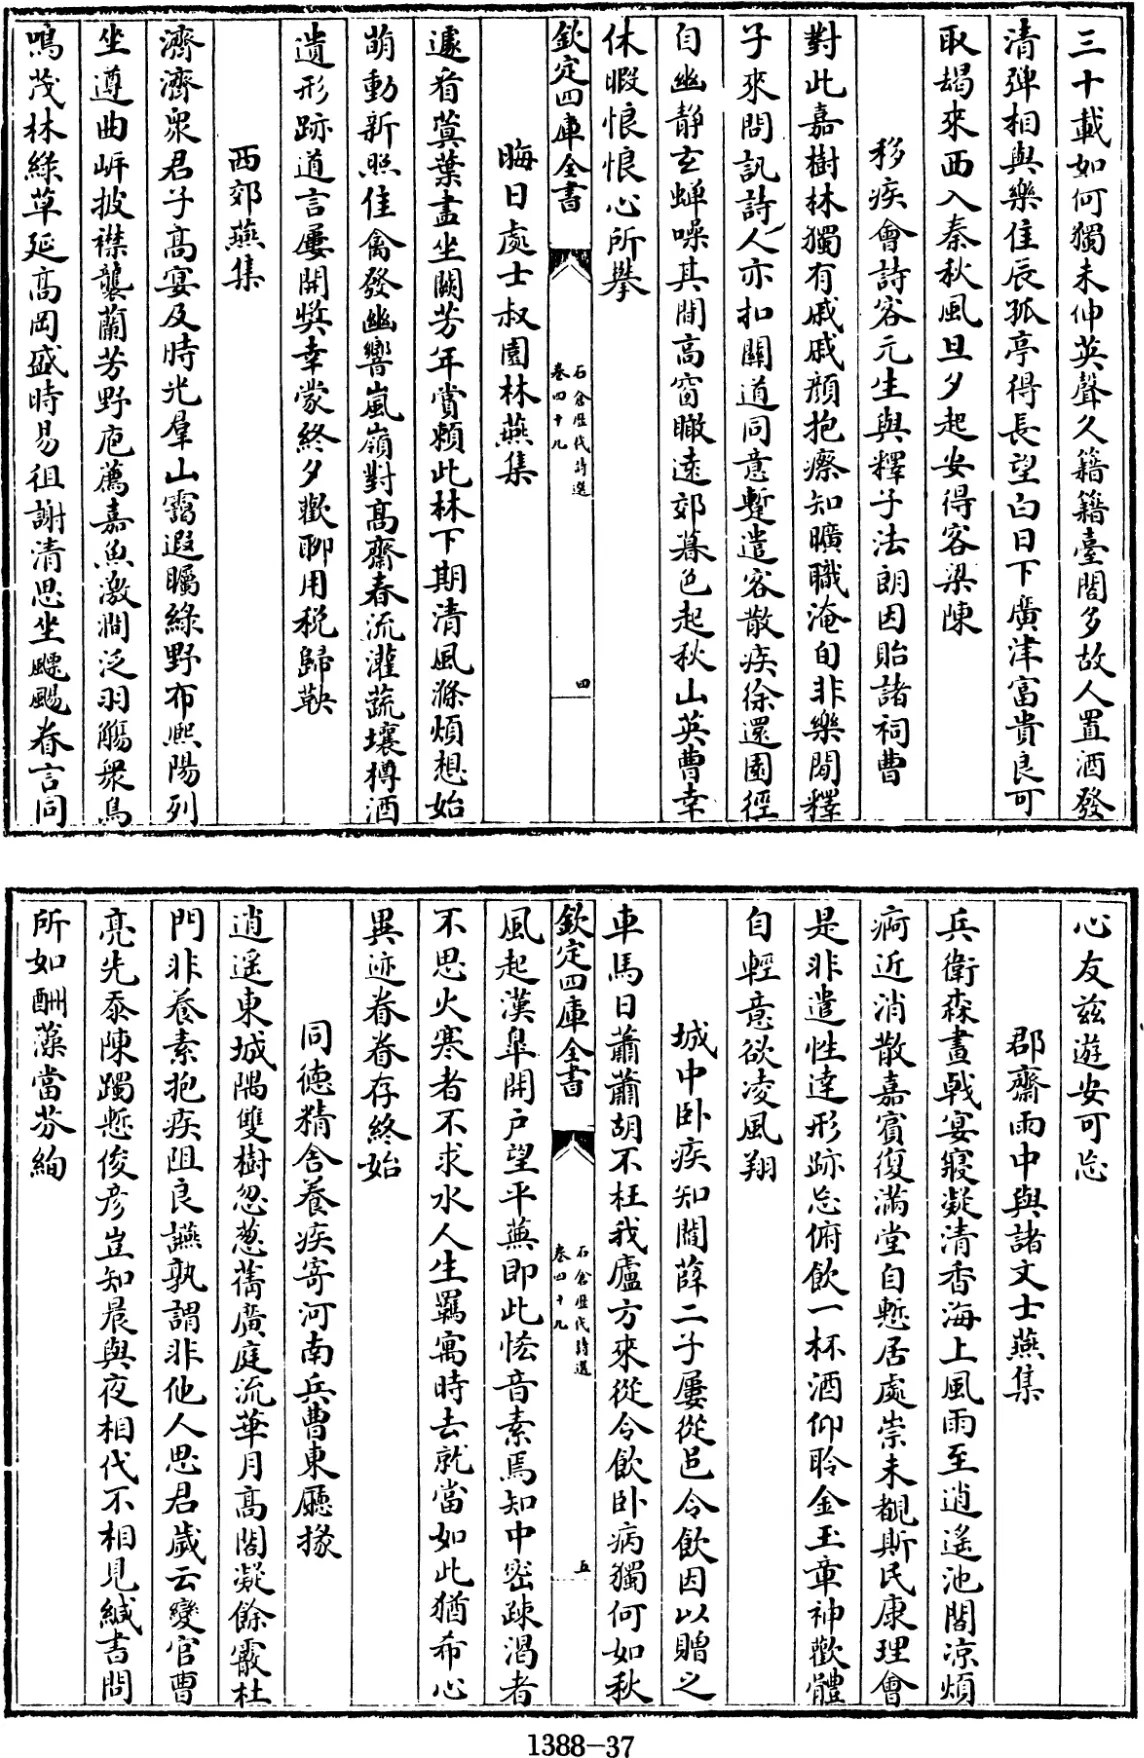 三十載如何獨未伸英聲久籍籍臺閣多故人置酒發
清彈相與樂佳辰孤亭得長望白日下廣津富貴良可
取朅來西入秦秋風旦夕起安得客梁陳
移疾會詩客元生與釋子法朗因貽諸祠曹
對此嘉樹林獨有戚戚顔抱瘵知曠職淹旬非樂閒釋
子來問訊詩人亦扣關道同意蹔遣客散疾徐還園徑
自幽静玄蟬噪其間高窗瞰遠郊暮色起秋山英曹幸
休暇悢悢心所攀
欽定四庫全書
石倉歴代詩選
卷四十九
四
晦日處士叔園林燕集
遽看蓂葉盡坐闕芳年賞頼此林下期清風滌煩想始
萌動新煦佳禽發幽響嵐嶺對髙齋春流灌蔬壤樽酒
遺形跡道言屢開奬幸蒙終夕歡聊用税歸鞅
西郊燕集
濟濟衆君子髙宴及時光羣山靄遐矚緑野布熙陽列
坐遵曲岸披襟襲蘭芳野庖薦嘉魚激澗泛羽觴衆鳥
鳴茂林緑草延髙岡盛時易徂謝清思坐飄颺眷言同
心友兹遊安可忘
郡齋雨中與諸文士燕集
兵衛森畫戟宴寢凝清香海上風雨至逍遥池閣凉煩
疴近消散嘉賓復滿堂自慙居處崇未覩斯民康理會
是非遣性達形跡忘俯飲一杯酒仰聆金玉章神歡體
自輕意欲凌風翔
城中卧疾知閻薛二子屢從邑令飲因以贈之
車馬日蕭蕭胡不枉我廬方來從令飲卧病獨何如秋
欽定四庫全書
石倉歴代詩選
卷四十九
五
風起漢臯開户望平蕪即此恡音素焉知中密疎渇者
不思火寒者不求水人生羈寓時去就當如此猶希心
異迹眷眷存終始
同德精舍養疾寄河南兵曹東廳掾
逍遥東城隅雙樹忽葱蒨廣庭流華月髙閣凝餘霰杜
門非養素抱疾阻良讌孰謂非他人思君歲云變官曹
亮先忝陳躅慙俊彦豈知晨與夜相代不相見緘書問
所如酬藻當芬絢
1388—37